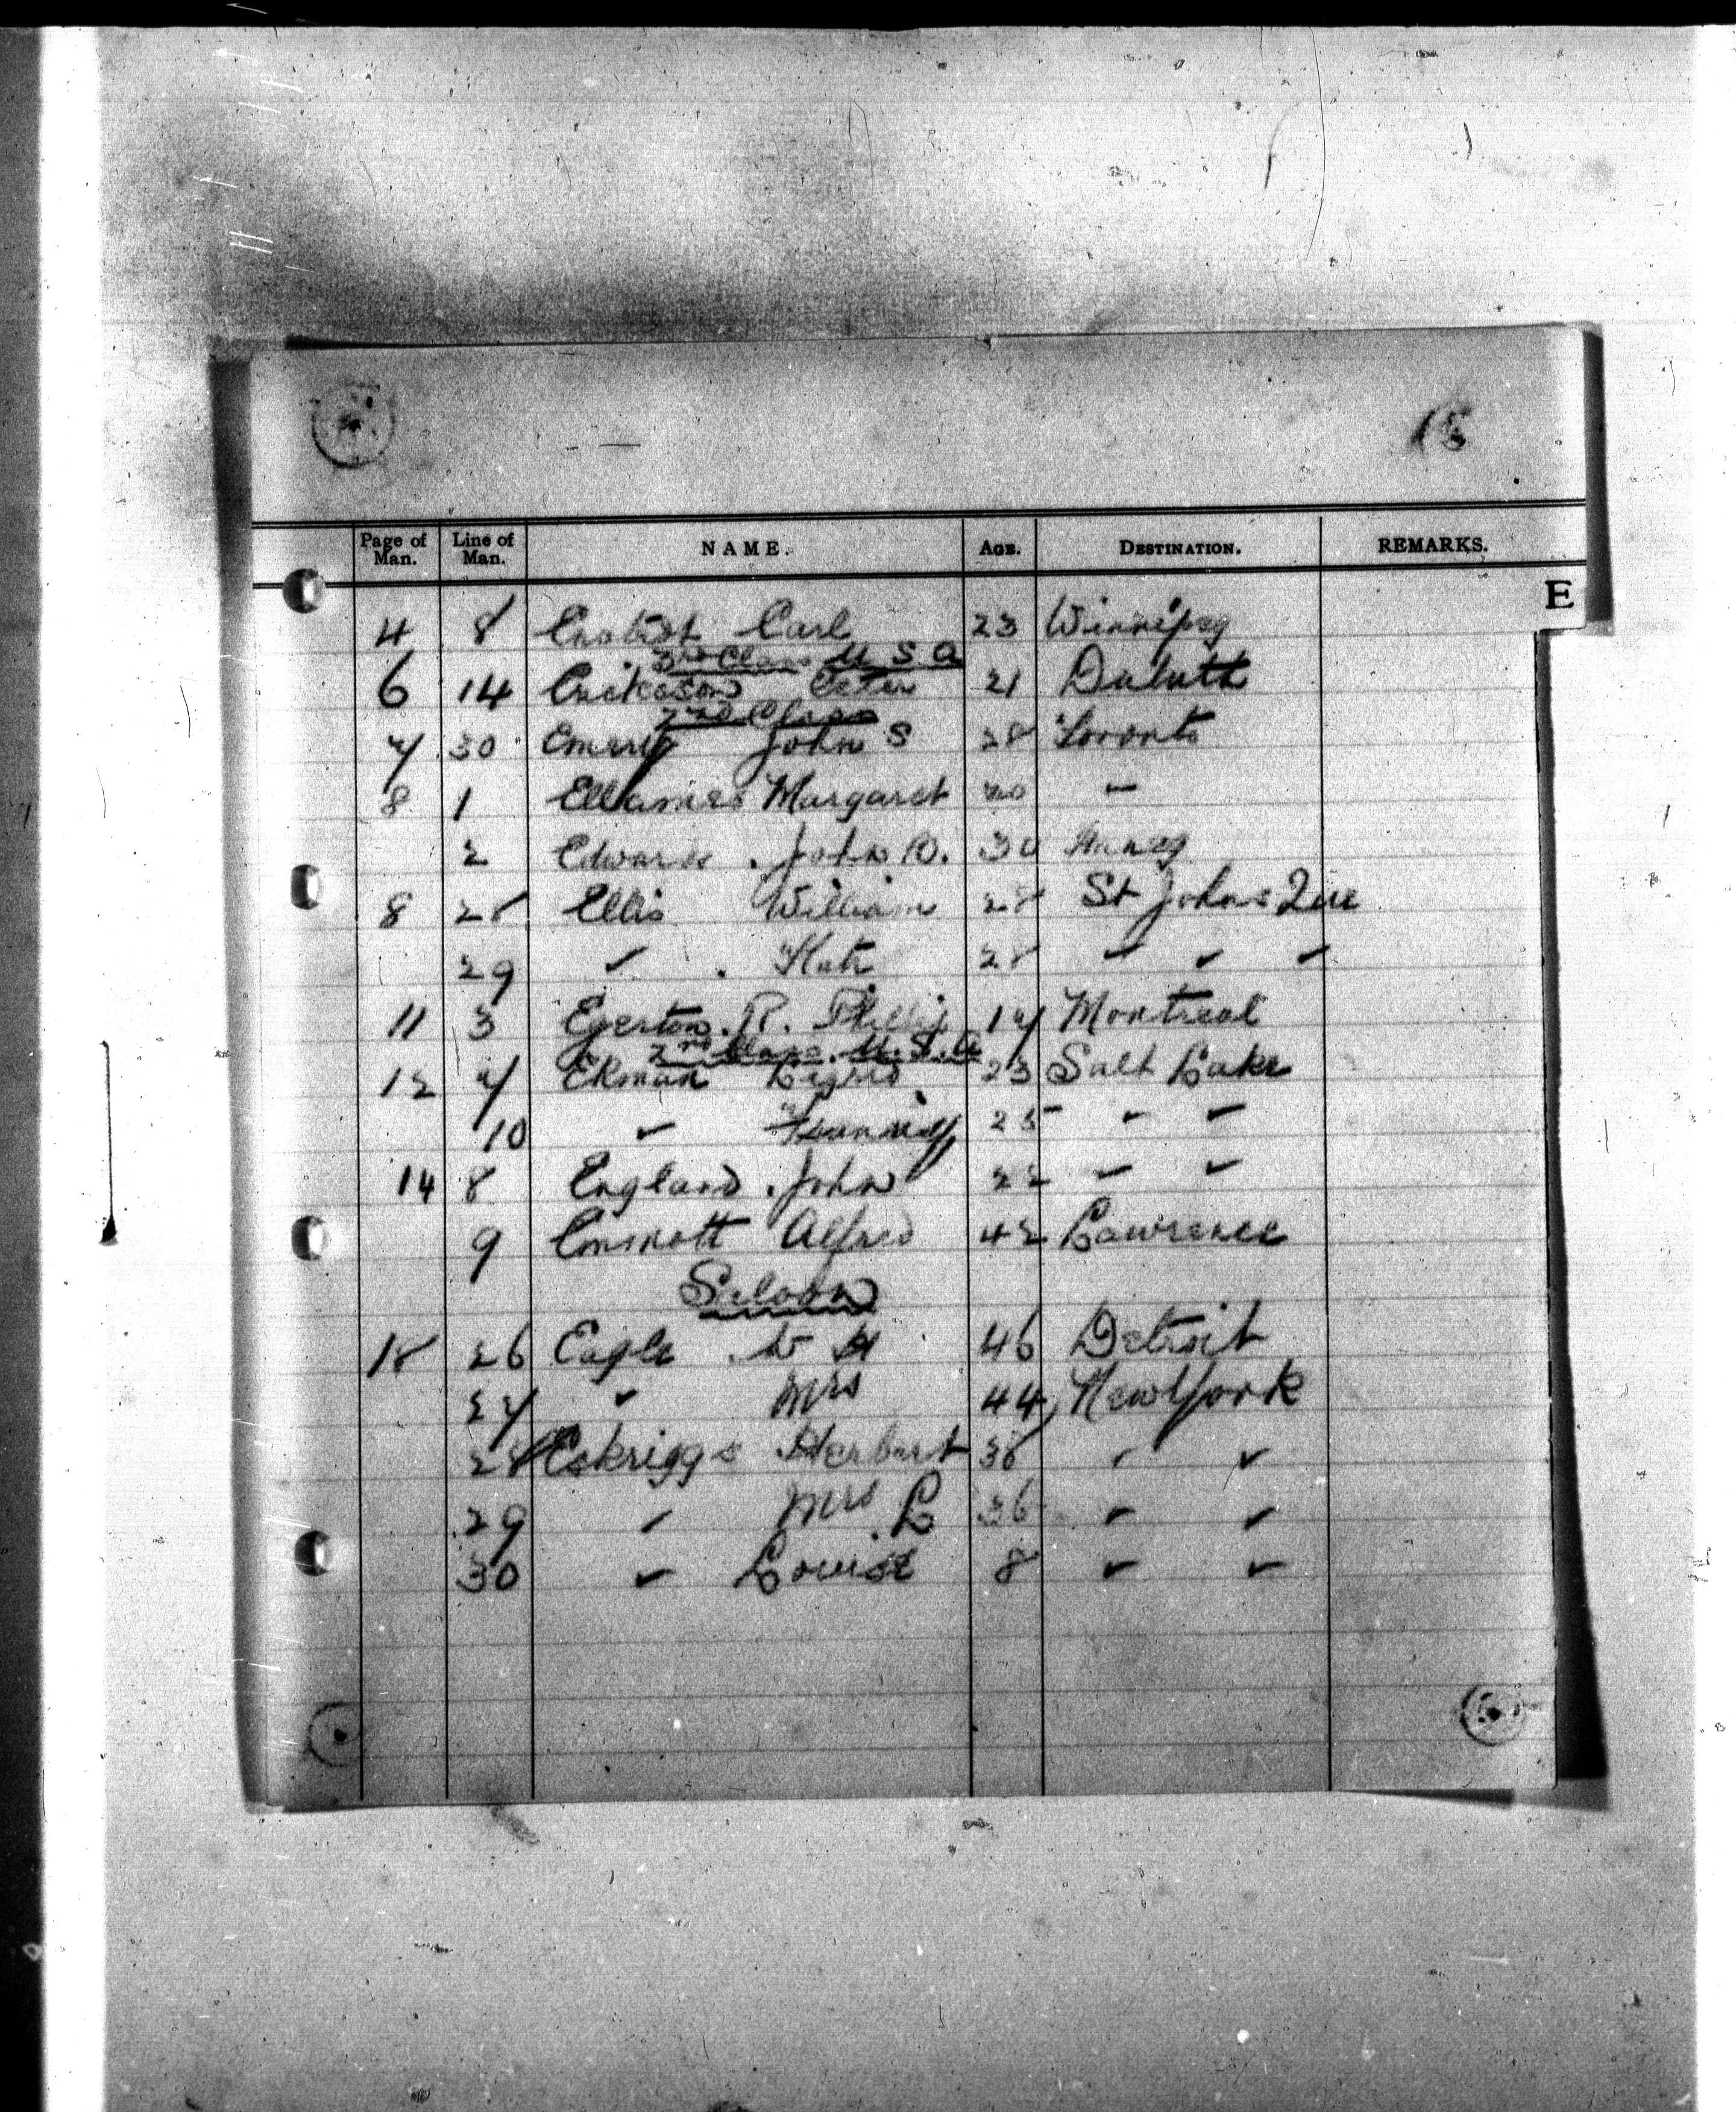 15
Page of Man. Line of Man. NAME. AGE. DESTINATION. REMARKS.
E
4 8 Carl 23 Winnipeg
3rd Class U S A
6 14 Erickson Peter 21 Duluth
2nd Class
7 30 Emery John S 28 Toronto
8 1 Ellames Margaret "
2 Edwards John 30
8 28 Ellis William 28 St Johns Que
29 " Kate 28 " " "
11 3 Egerton R. Phillip 17 Montreal
2nd Class U.S.A
12 7 Ekman 23 Salt Lake
10 " 25 " "
14 8 England John 22 " "
9 Alfred 42 Lawrence
Saloon
18 26 Eagle W H 46 Detroit
27 " Mrs 44 New York
28 Eskrigge Herbert 38 " "
29 " Mrs L 36 " "
30 " Louise 8 " "